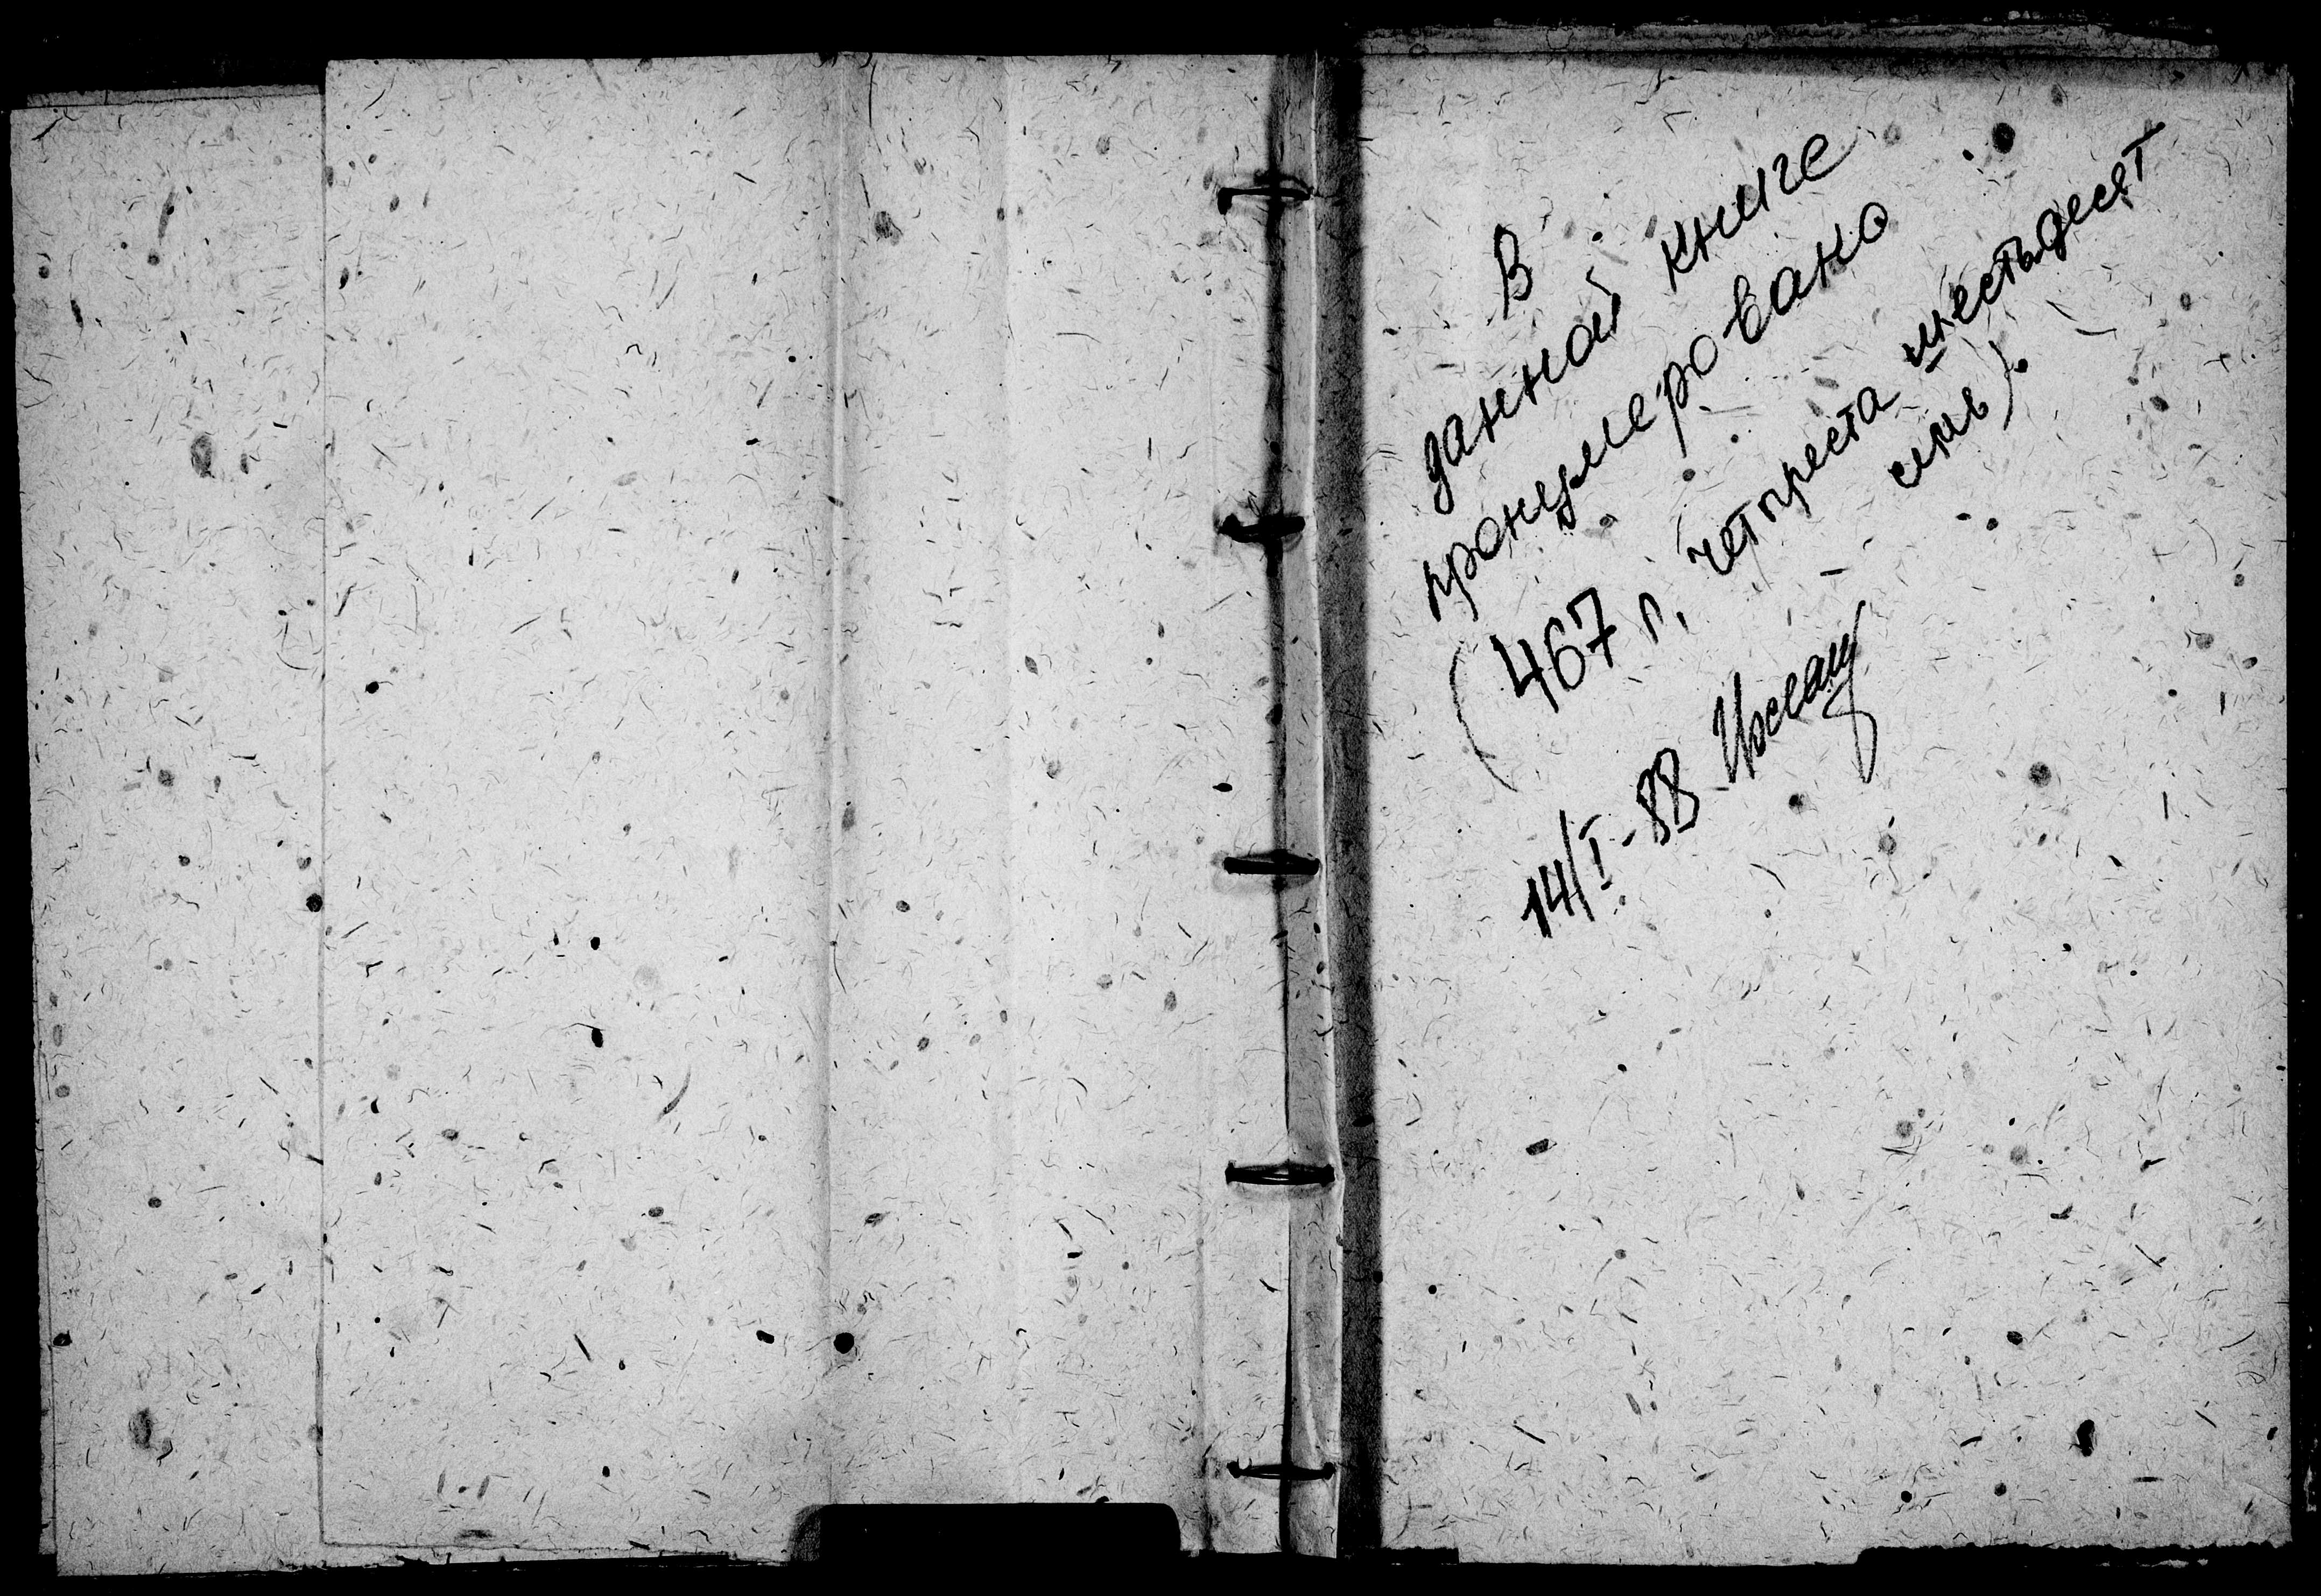 В
данной книге
пронумеровано
(467 г, четыреста шестьдесят
семь)
14/I-88